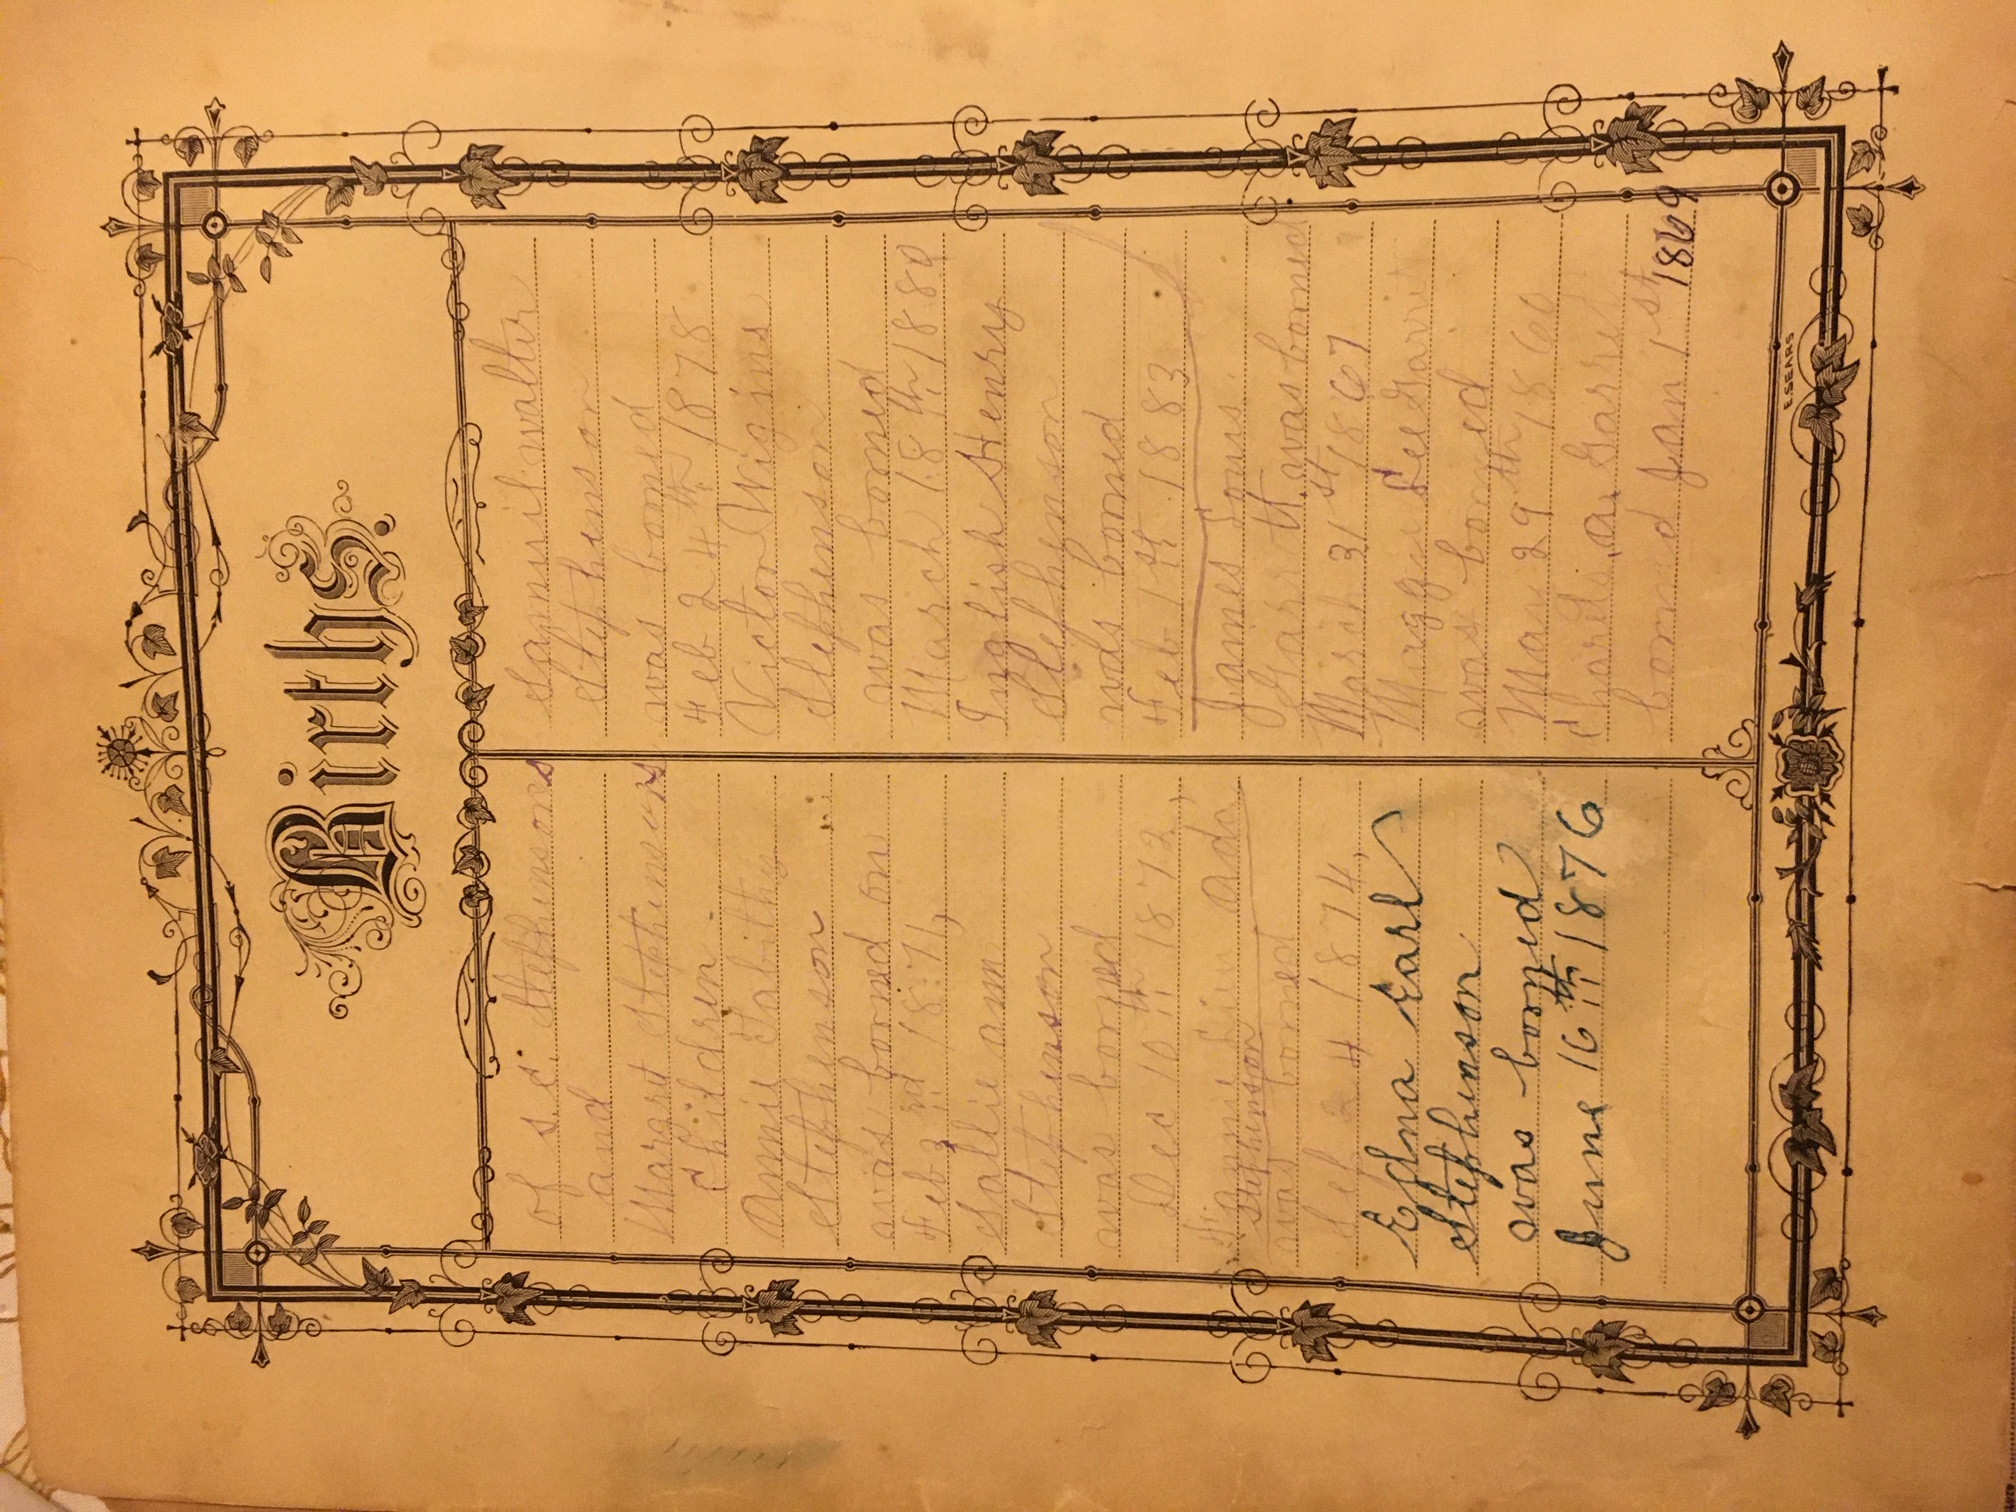 Births.
of S. C. Stephensons
and
Margret Stephensons
Children
Annie Tabitha
Stephenson
was borned on
Feb 3rd 1871,
Sallie ann
Stephenson
was borned
Dec 10th 1872,
Stephenson
was borned
24 1874,
Edna Earl
Stephenson
was borned
June 16th 1876
Samuil walter
Stephenson
was borned
Feb 24th 1878
Victor Wigins
Stephenson
was borned
March 18th 1880
Inglish Henry
Stephenson
was borned
Feb 1st 1883
James Louis
was borned
March 31st 1867
Maggie Lee Garrit
was borned
May 29th 1860
Garrit
borned Jan 1st
1869
F. SEARS